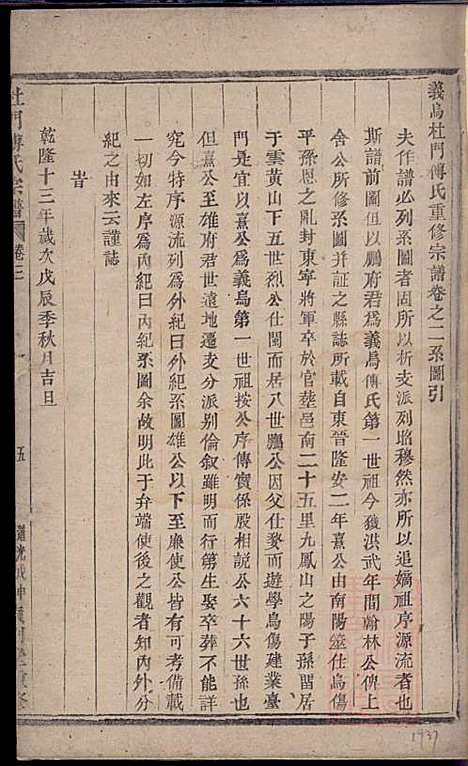 義烏杜門傅氏重修宗譜卷之二系圖引
夫作譜必列系圖者固所以析支派列昭穆然亦所以追嫡祖序源流者也
斯譜前圖但以鵬府君為義烏傅氏第一世祖今獲洪武年間翰林公俾上
舍公所修系圖并証之縣誌所載自東晉隆安二年熹公由南陽筮仕烏傷
平孫恩之亂封東寧將軍卒於官塟邑南二十五里九鳳山之陽子孫留居
于雲黃山下五世烈公仕閩而居八世鵬公因父仕婺而遊學烏傷建業臺
門是宜以熹公爲義烏第一世祖按公序傳實係殷相說公六十六世孫也
但熹公至雄府君世遠地遷支分派别倫叙雖明而行第生娶卒葬不能詳
究今特序源流列爲外紀曰外紀系圖雄公以下至廉使公皆有可考備載
一切如左序爲内紀曰内紀系圖余故明此于弁端使後之觀者知内外分
紀之由來云謹誌
旹
乾隆十三年歲次戊辰季秋月吉旦
杜門傅氏宗譜
卷二
五
1937